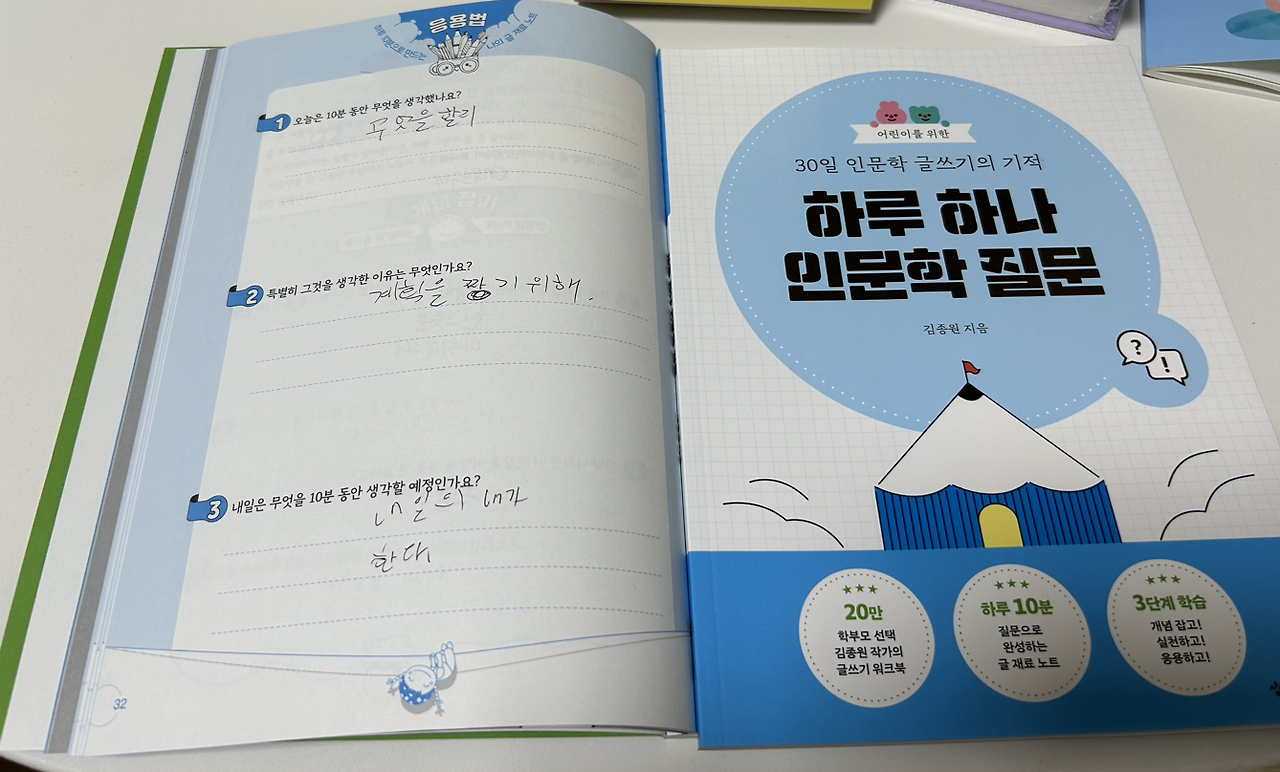 응용법
하루 10분으로 만드는 나의 글 재료 노트
1 오늘은 10분 동안 무엇을 생각했나요?
무엇을 할리
2 특별히 그것을 생각한 이유는 무엇인가요?
계획을 짱기 위해.
3 내일은 무엇을 10분 동안 생각할 예정인가요?
내일의 내가
한다
32
어린이를 위한
30일 인문학 글쓰기의 기적
하루 하나
인문학 질문
김종원 지음
?
!
20만
학부모 선택
김종원 작가의
글쓰기 워크북
하루 10분
질문으로
완성하는
글 재료 노트
3단계 학습
개념 잡고!
실천하고!
응용하고!